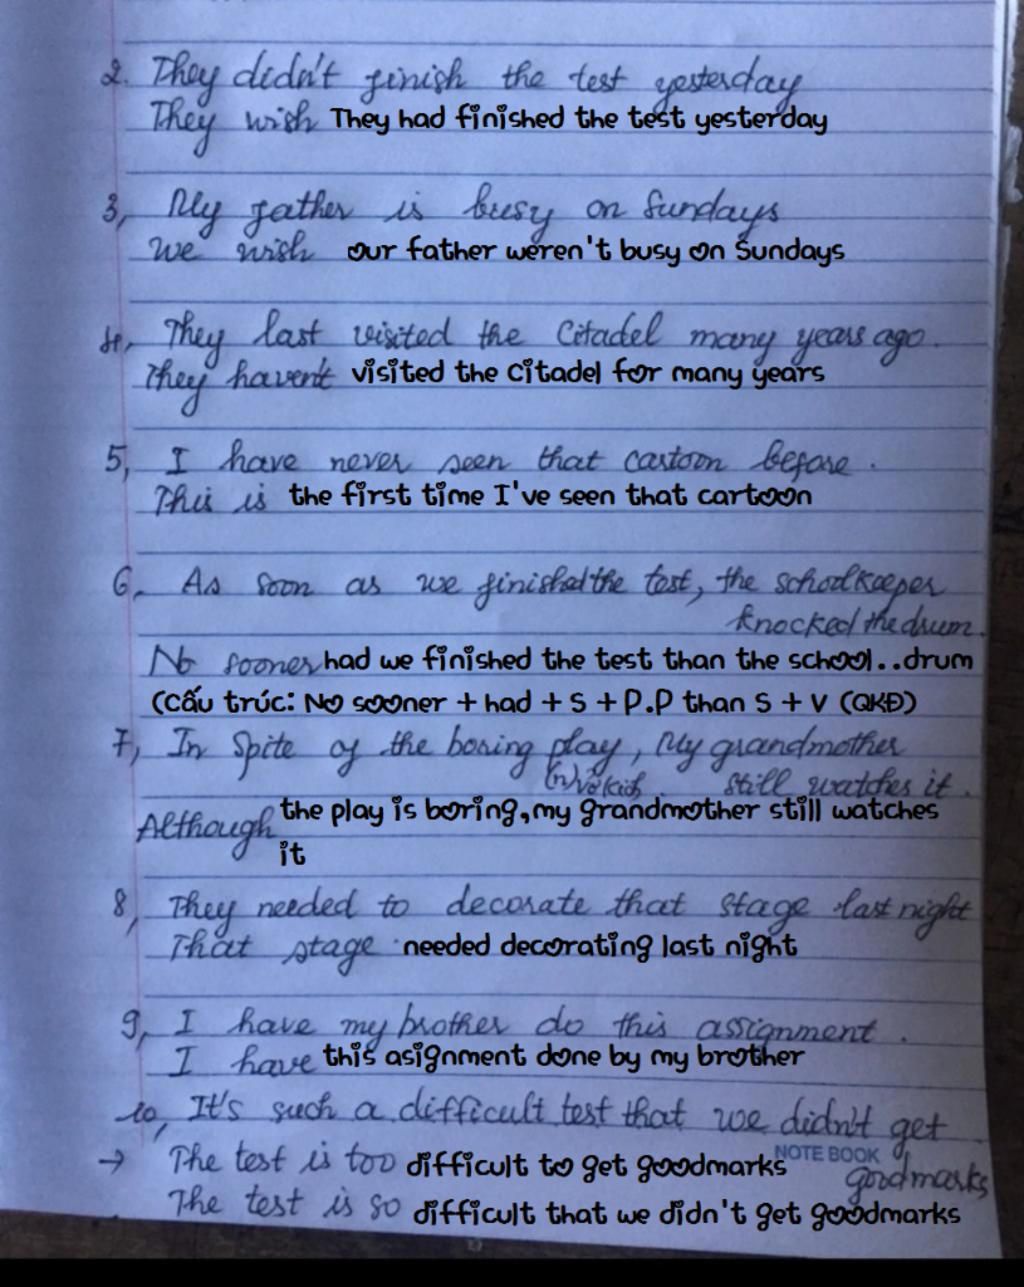 2. They didn't finish the test yesterday
They wish They had finished the test yesterday
3, My father is busy on Sundays
We wish our father weren't busy on Sundays
4, They last visited the Citadel many years ago.
They haven't visited the Citadel for many years
5, I have never seen that cartoon before.
This is the first time I've seen that cartoon
6. As soon as we finished the test, the schoolkeeper
knocked the drum.
No sooner had we finished the test than the school..drum
(Cấu trúc: No sooner + had + S + P.P than S + V (QKĐ)
7, In spite of the boring play, My grandmother
(n) vở kịch still watches it.
Although the play is boring,my grandmother still watches
it
8, They needed to decorate that stage last night
That stage needed decorating last night
9, I have my brother do this assignment.
I have this asignment done by my brother
10, It's such a difficult test that we didn't get
NOTE BOOK
goodmarks
→ The test is too difficult to get goodmarks
The test is so difficult that we didn't get goodmarks